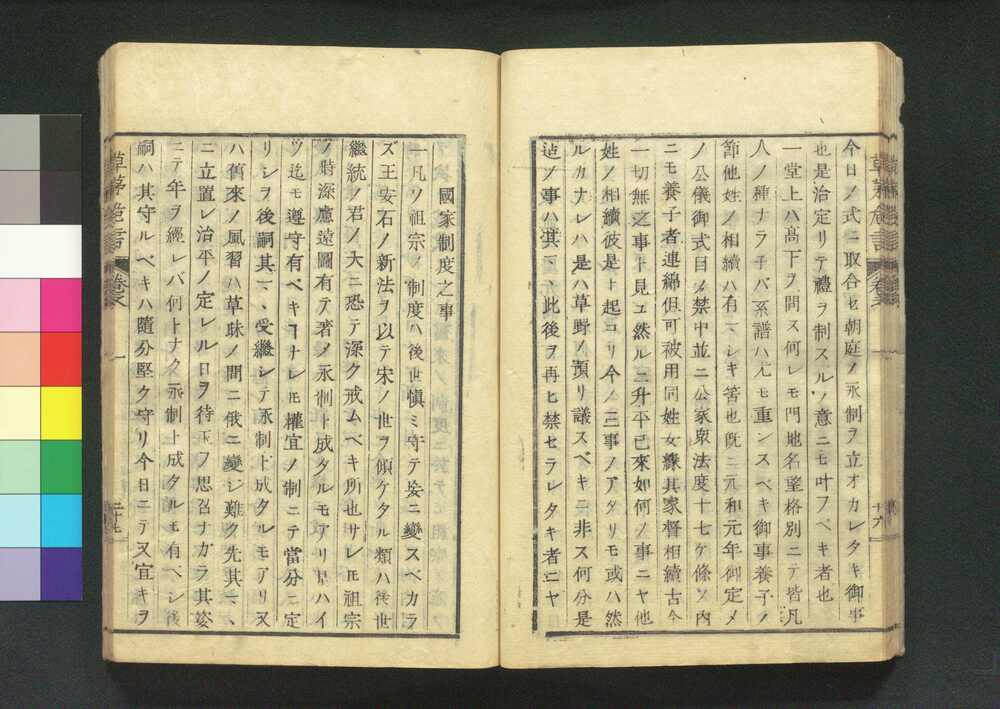 今日ノ式ニ取合セ朝庭ノ永制ヲ立オカレタキ御事
也是治定リテ禮ヲ制スルノ意ニモ叶フベキ者也
一堂上ハ高下ヲ問ス何レモ門地名望格別ニテ皆凡
人ノ種ナラ子バ系譜ハ尤モ重ンスベキ御事養子ノ
節他姓ノ相續ハ有マシキ筈也既ニ元和元年御定メ
ノ公儀御式目ノ禁中並ニ公家衆法度十七ケ條ノ内
ニモ養子者連綿但可被用同姓女縁其家督相續古今
一切無之事ト見ユ然ルニ升平已來如何ノ事ニヤ他
姓ノ相續彼是ト起コリ今ノ三事ノアタリモ或ハ然
ルカナレハ是ハ草野ノ預リ議スベキニ非ス何分是
迠ノ事ハ其マヽ此後ヲ再ヒ禁セラレタキ者ニヤ
十六
國家制度之事
一凡ソ祖宗ノ制度ハ後世愼ミ守テ妄ニ變スベカラ
ズ王安石ノ新法ヲ以テ宋ノ世ヲ傾ケタル類ハ後世
繼統ノ君ノ大ニ恐テ深ク戒ムベキ所也サレ𪜈祖宗
ノ時深慮遠圖有テ著ノ永制ト成タルモアリ是ハイ
ツ迄モ遵守有ベキヿナレ𪜈權宜ノ制ニテ當分ニ定
リシヲ後嗣其マヽ受繼シテ永制ト成タルモアリ又
ハ舊來ノ風習ハ草昧ノ間ニ俄ニ變シ難ク先其マヽ
ニ立置レ治平ノ定レル日ヲ待玉フ思召ナカラ其姿
ニテ年ヲ經レバ何トナク永制ト成タルモ有ベシ後
嗣ハ其守ルベキハ隨分堅ク守リ今日ニテ又宜キヲ
草茅危言 卷